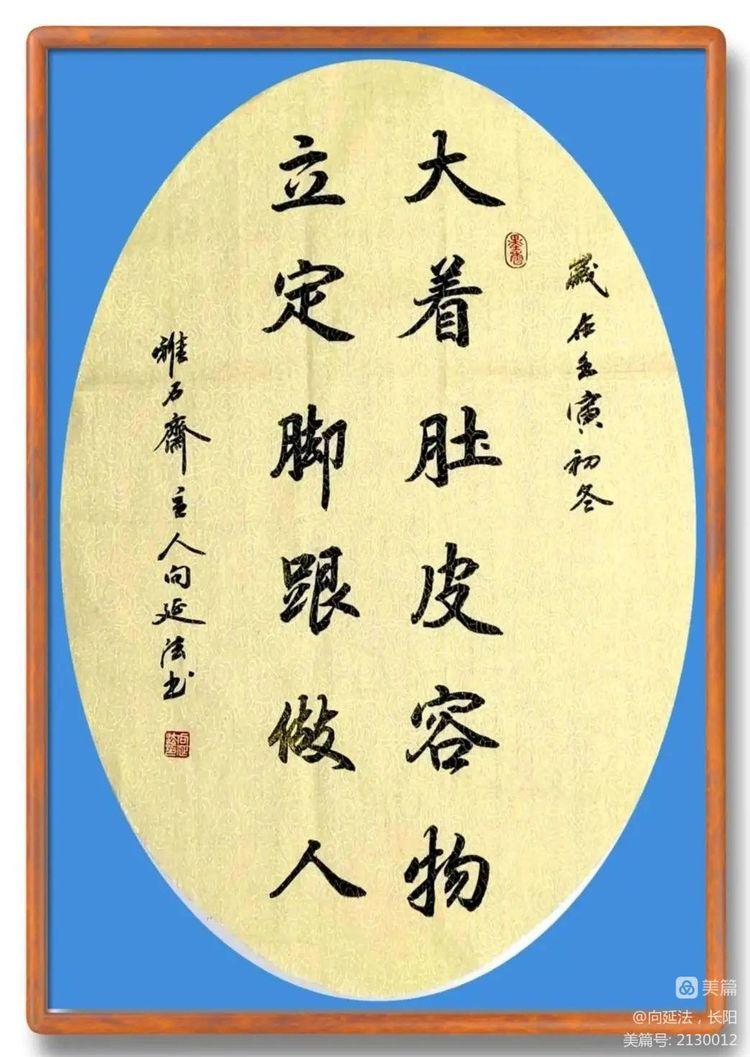 歲在壬寅初冬
大着肚皮容物
立定脚跟做人
雅石齋主人向延法书
墨香
美篇
@向延法，长阳
美篇号: 2130012